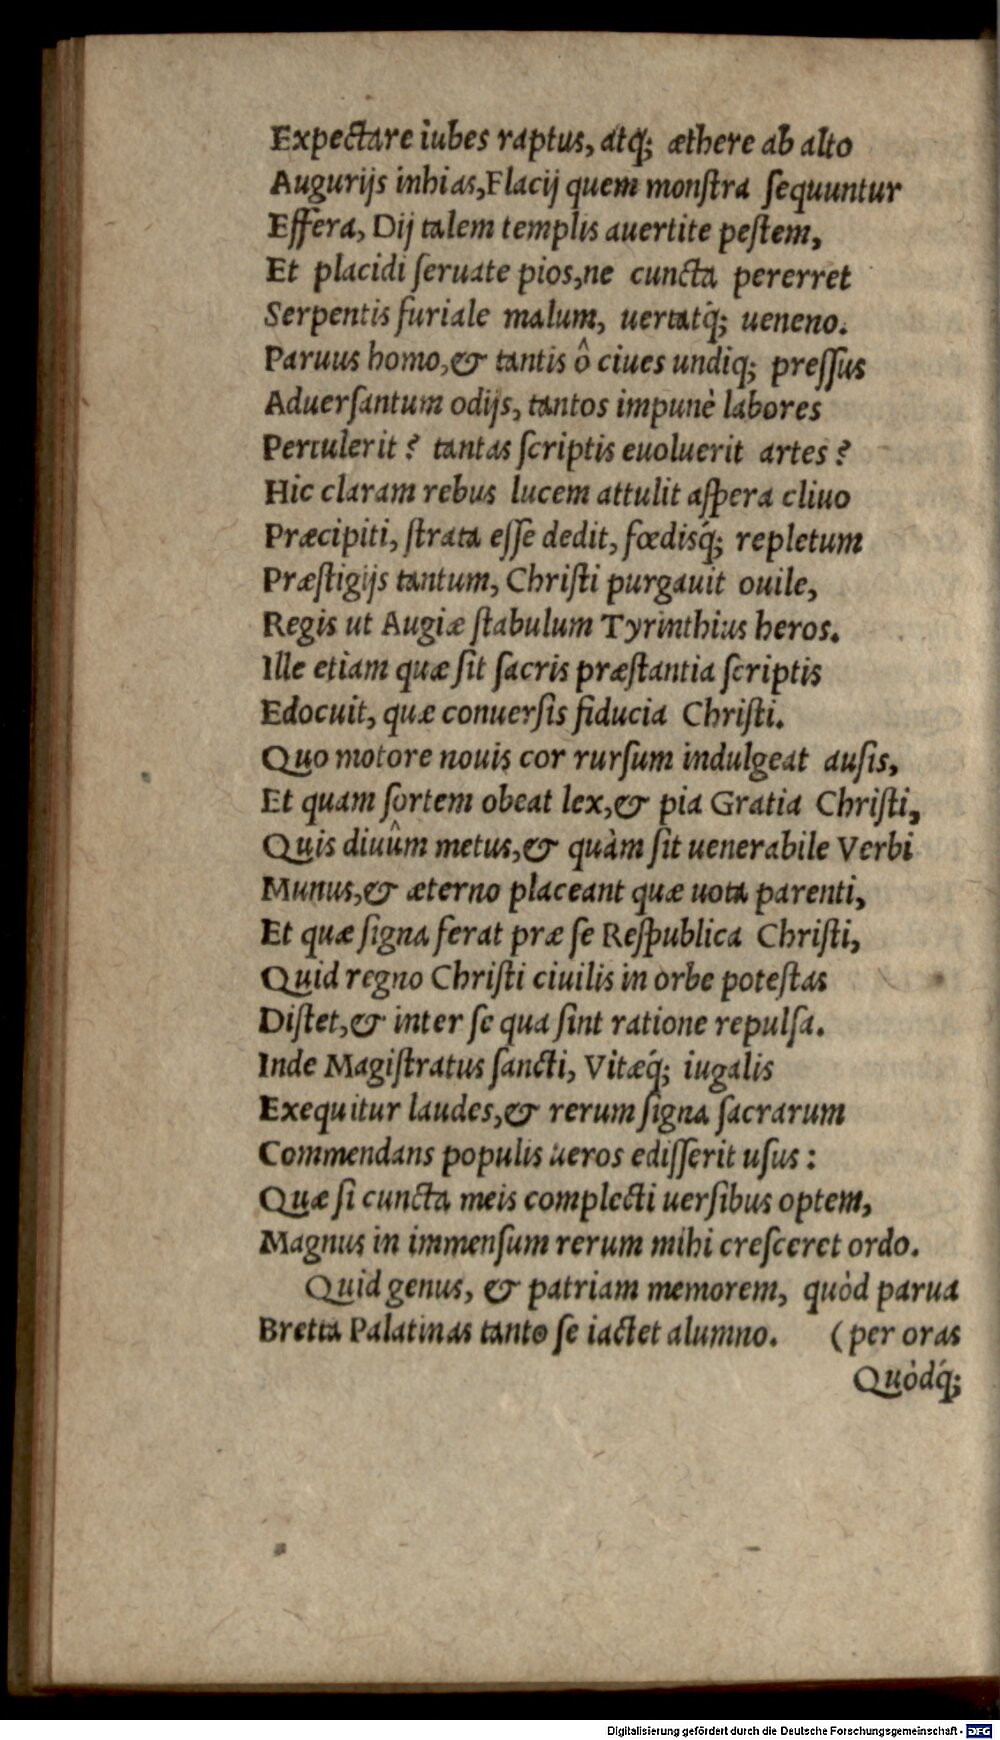 Expectare iubes raptus, atq́; æthere ab alto
Augurijs inhias, Flacij quem monſtra ſequuntur
Effera, Dij talem templis auertite peſtem,
Et placidi ſeruate pios, ne cuncta pererret
Serpentis furiale malum, uertatq́; ueneno.
Paruus homo, & tantis ô ciues undiq; preſſus
Aduerſantum odijs, tantos impunè labores
Pertulerit? tantas ſcriptis euoluerit artes?
Hic claram rebus lucem attulit aſpera cliuo
Præcipiti, ſtrata eſſe dedit, fœdisq́; repletum
Præſtigijs tantum, Chriſti purgauit ouile,
Regis ut Augiæ ſtabulum Tyrinthius heros.
Ille etiam quæ ſit ſacris præſtantia ſcriptis
Edocuit, quæ conuerſis fiducia Chriſti.
Quo motore nouis cor rurſum indulgeat auſis,
Et quam ſortem obeat lex, & pia Gratia Chriſti,
Quis diuûm metus, & quàm ſit uenerabile Verbi
Munus, & æterno placeant quæ uota parenti,
Et quæ ſigna ferat præ ſe Reſpublica Chriſti,
Quid regno Chriſti ciuilis in orbe poteſtas
Diſtet, & inter ſe qua ſint ratione repulſa.
Inde Magiſtratus ſancti, Vitæq́; iugalis
Exequitur laudes, & rerum ſigna ſacrarum
Commendans populis ueros ediſſerit uſus:
Quæ ſi cuncta meis complecti uerſibus optem,
Magnus in immenſum rerum mihi creſceret ordo.
Quid genus, & patriam memorem, quòd parua
Bretta Palatinas tanto ſe iactet alumno. (per oras
Quòdq́;
Digitalisierung gefördert durch die Deutsche Forschungsgemeinschaft - DFG